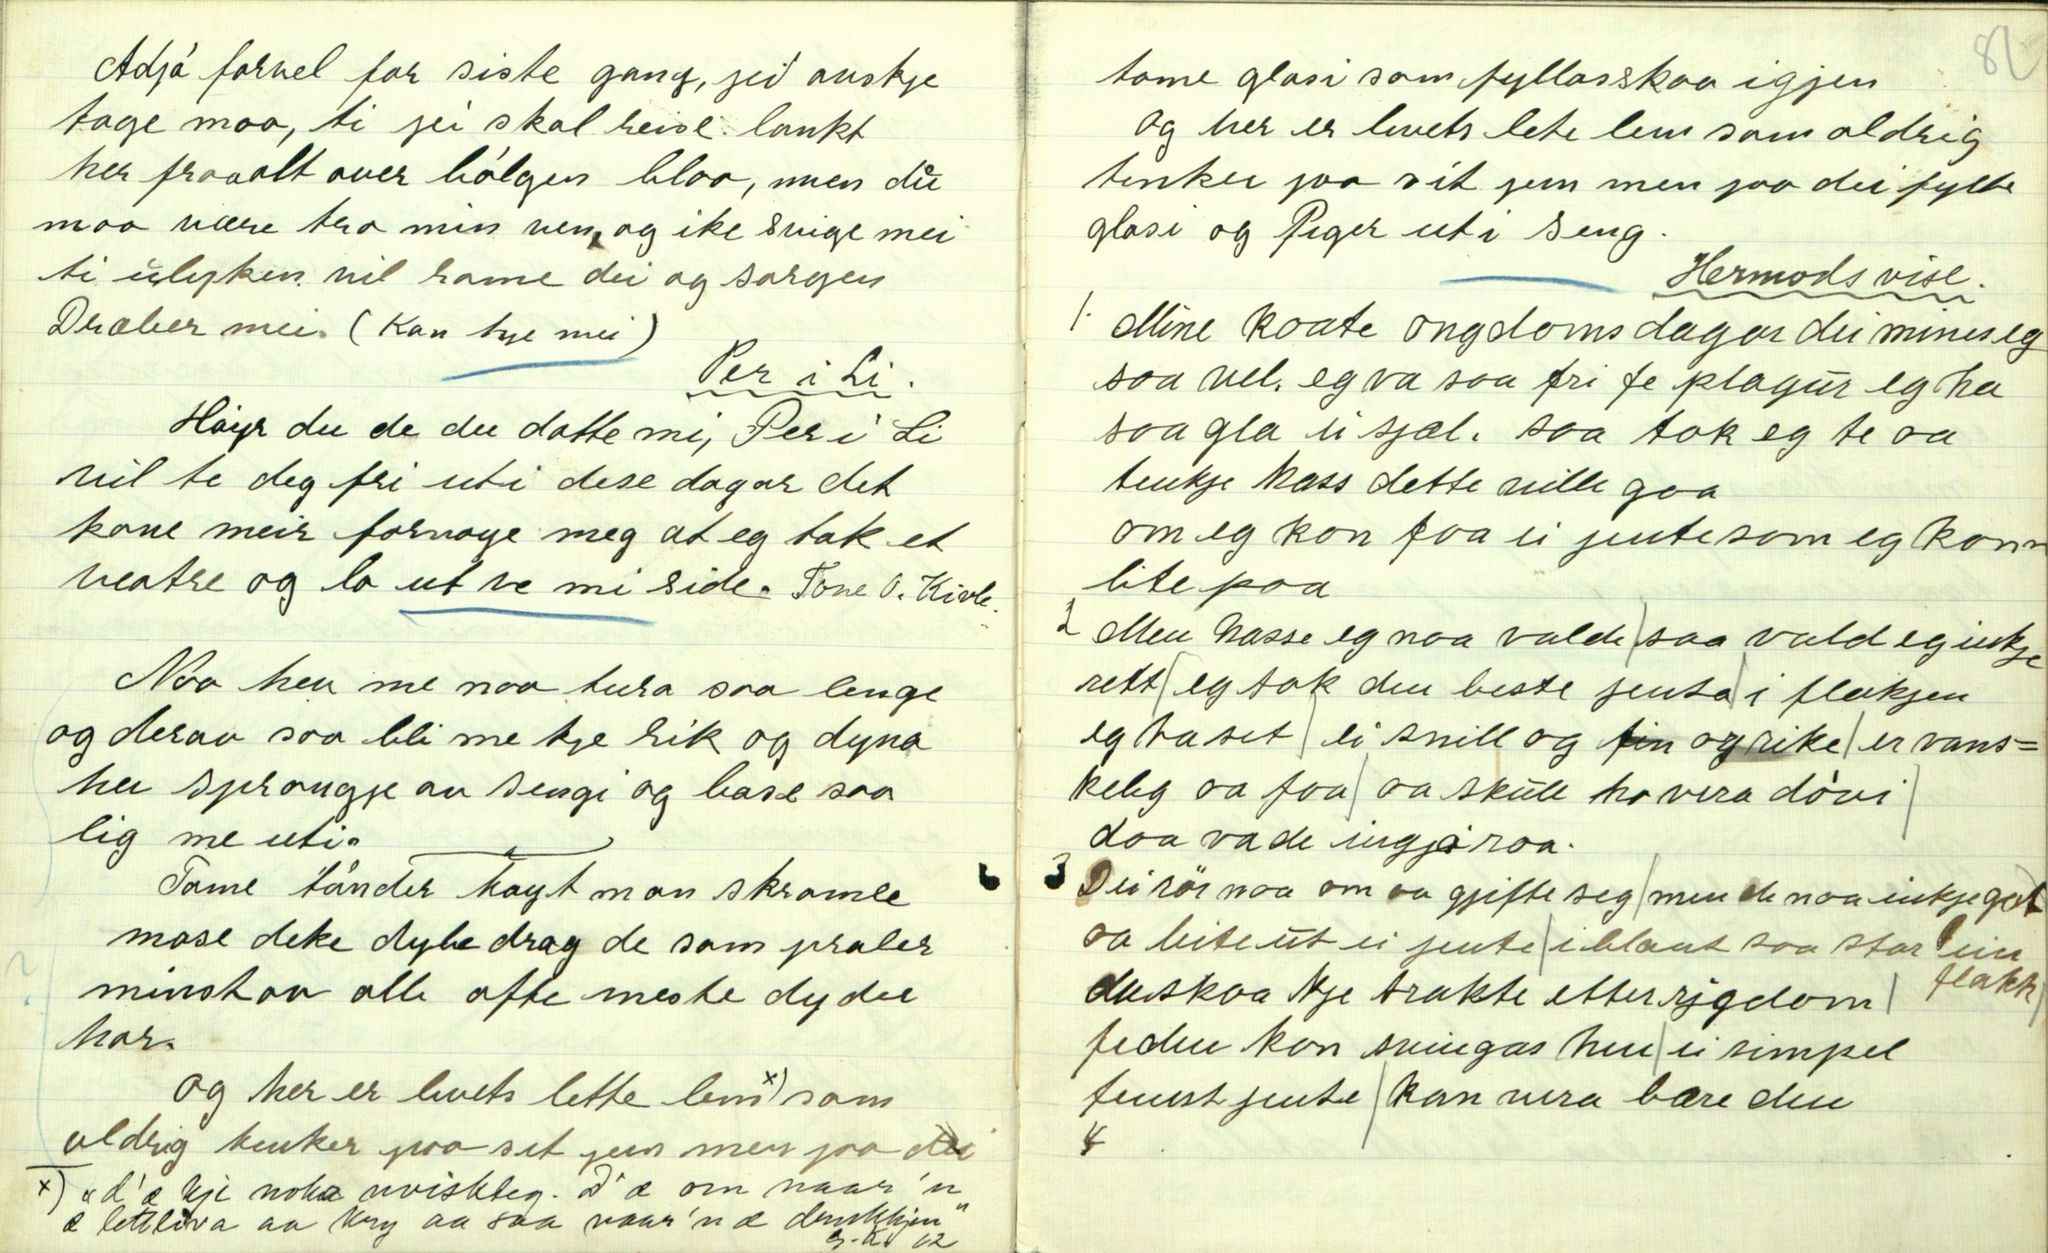 Adjó farvel for siste gang, jei ønskje
tage maa, ti jei skal reise lankt
her fraa alt over bólgen blaa, men dŭ
maa være tro min ven, og ike svige mei
ti ŭlyken vil rame dei og sorgen
Dræber mei. (Kan hje mei)
Per i Li.
Høyr du de du datte mi, Per i Li
vil te deg fri uti dese dagar det
kane meir fornøye meg at eg tok et
veatre og lo ut ve mi side. Tone O. Kivle.
Naa heu me naa tura saa lenge
og derav saa bli me kje rik og dyna
heu sprongje av sengi og base saa
lig me uti.
Tome tónder høyt man skramle
mase deke dybe drag de som praler
minst av alle ofte meste dyder
har.
og her er livets lette lem x) som
aldrig tenker paa set jem men paa dei
x) "d'æ kje noko uviskleg. D'æ om naar'n
æ lettliva aa kry aa saa naar'n æ drukkjen"
tome glasi som fyllas skaa igjen
og her er livets lete lem som aldrig
tenker paa sit jem men paa dei fylte
glasi og Piger uti seng.
Hermods vise.
1. Mine kaate ongdoms dagar dei mines eg
saa vel. eg va saa fri fe plagŭr eg ha
saa gla ei sjæl. saa tok eg te aa
tenkje hass dette ville gaa
om eg kon faa ei jente som eg konn
lite paa
2 Men hasse eg naa valde / saa vald eg inkje
rett / eg tok den beste jenta / i flokjen
eg ha set / ei snill og fin og rike / er vans=
kelig aa faa / aa skŭlle ho vera dóvi /
daa va de ingjo raa.
3 Dei rór naa om aa gjifte seg / men de naa inkje gat
aa leite ŭt ei jente / iblant saa stor ein
flokk /
du skaa kje trakte etter rigdom /
fe den kan svingas hen / ei simpel
tenest jente / kan vera bære den
4